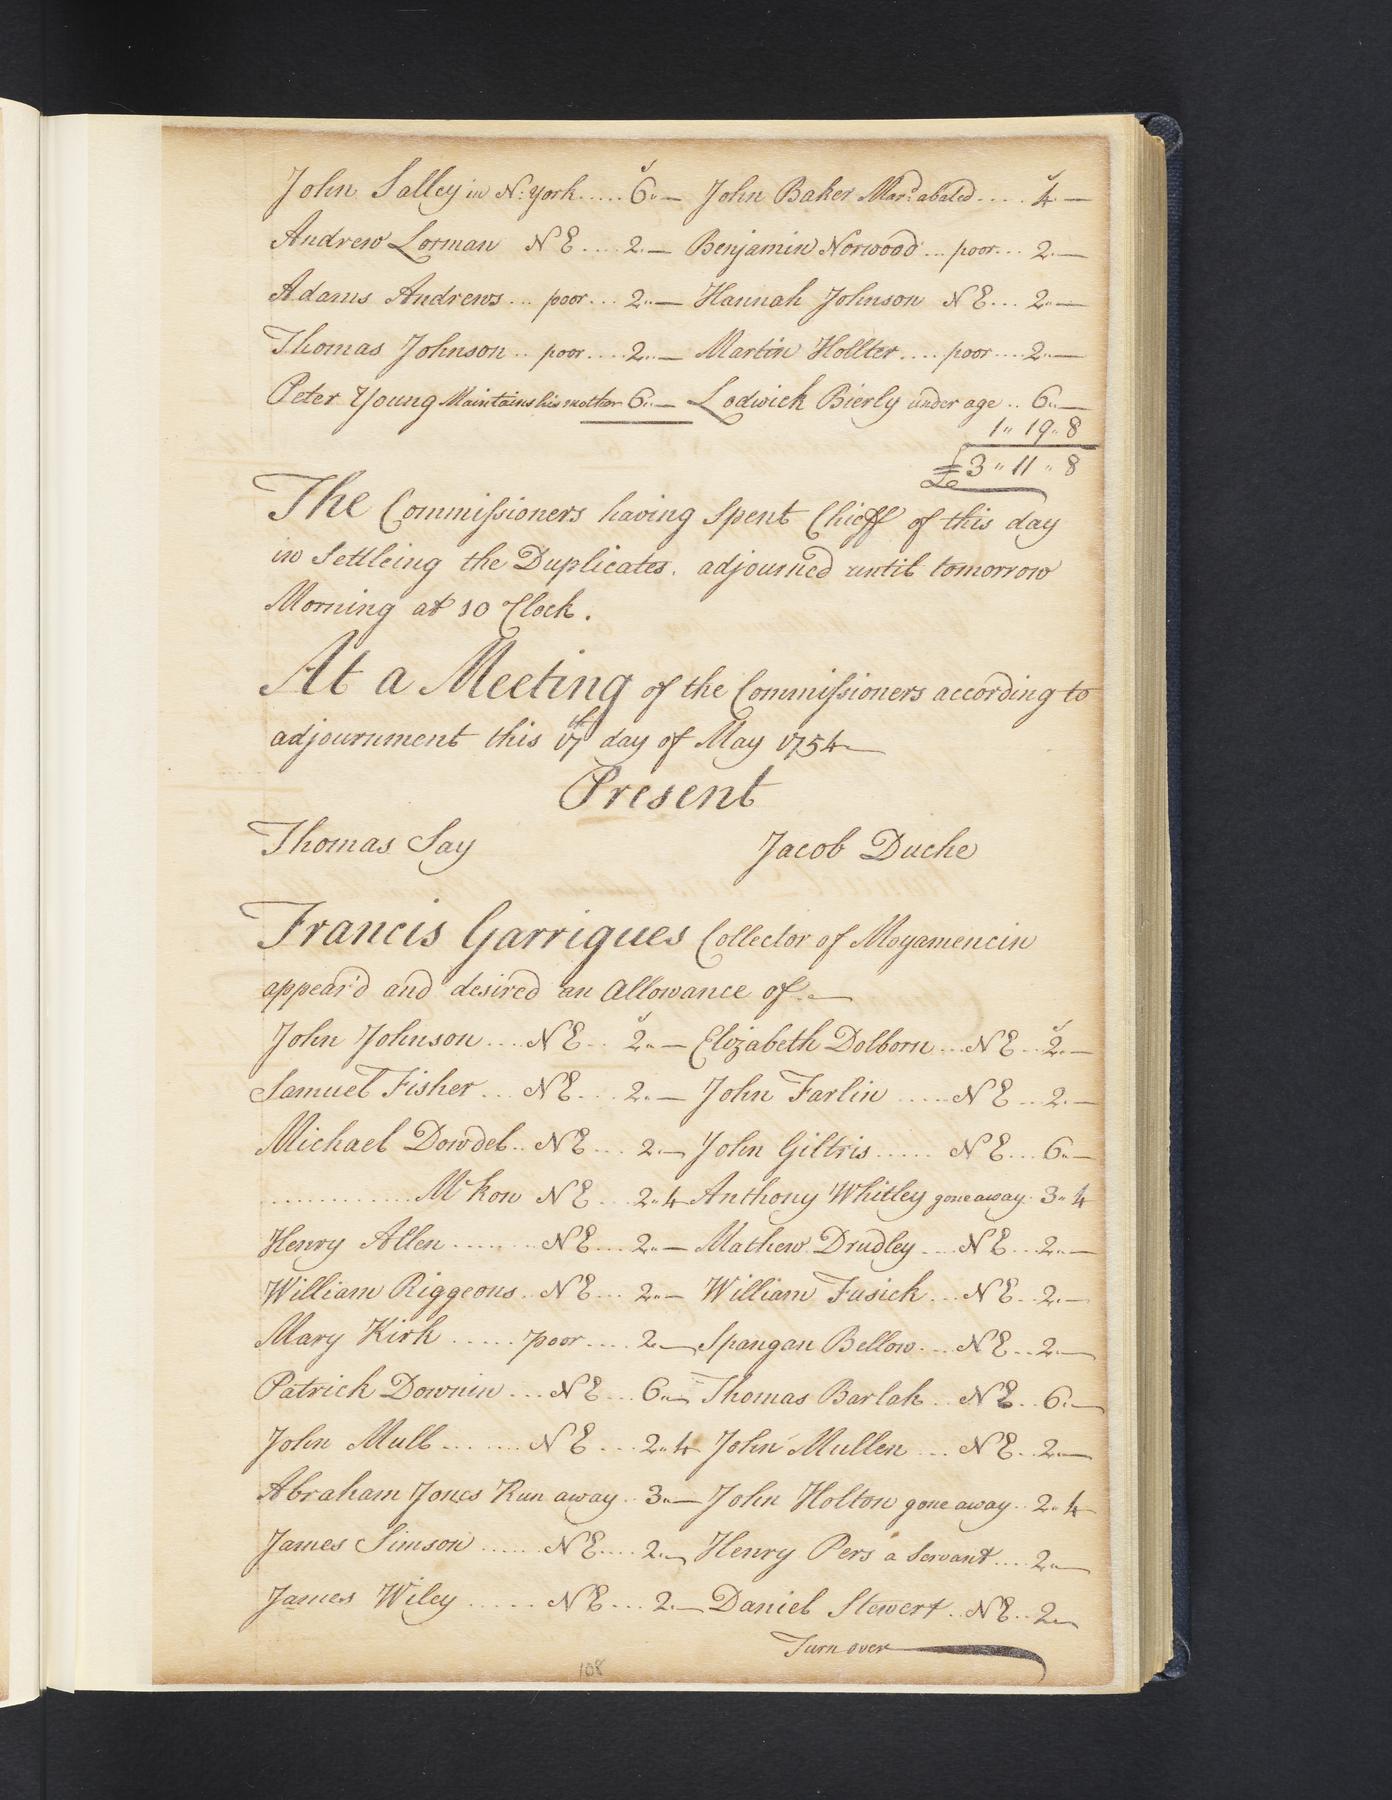 John Salley in N: York ..... 6"— John Baker Mar.d abated .... 4.—
Andrew Lorman N E .... 2.— Benjamin Norwood ... poor ... 2.—
Adams Andrews ... poor ... 2"— Hannah Johnson N E ... 2"—
Thomas Johnson .. poor .... 2"— Martin Hollter .... poor .... 2"—
Peter Young Maintains his mother 6"— Lodwick Bierly under age .. 6"—
1" 19" 8
£3 " 11 " 8
The Commissioners having Spent Chieff of this day
in Settleing the Duplicates. adjourned until tomorrow
Morning at 10 Clock.
At a Meeting of the Commissioners according to
adjournment this 17th day of May 1754—
Present
Thomas Say Jacob Duche
Francis Garrigues Collector of Moyamencin
appear'd and desired an Allowance of—
John Johnson .... N E .. 2"— Elizabeth Dolborn ... N E .. 2.—
Samuel Fisher ... N E ... 2.— John Farlin ..... N E ... 2.—
Michael Dowdel .. N E .... 2.— John Giltris ..... N E ... 6"—
............ Mckon N E ... 2"4 Anthony Whitley gone away. 3"4
Henry Allen ....... N E .... 2"— Mathew Drudley .... N E ... 2.—
William Riggeons .. N E ... 2"— William Fusick ... N E .. 2.—
Mary Kirk ..... poor .... 2.— Spangan Bellow ... N E .. 2.—
Patrick Downin ... N E ... 6"— Thomas Barlak .. N E .. 6.—
John Mull ....... N E ... 2"4 John Mullen ... N E .. 2.—
Abraham Jones Run away .. 3"— John Holton gone away .. 2"4
James Simson ...... N E .... 2.— Henry Pers a Servant .... 2"—
James Wiley ..... N E ... 2.— Daniel Stewert .. N E .. 2"—
Turn over
108